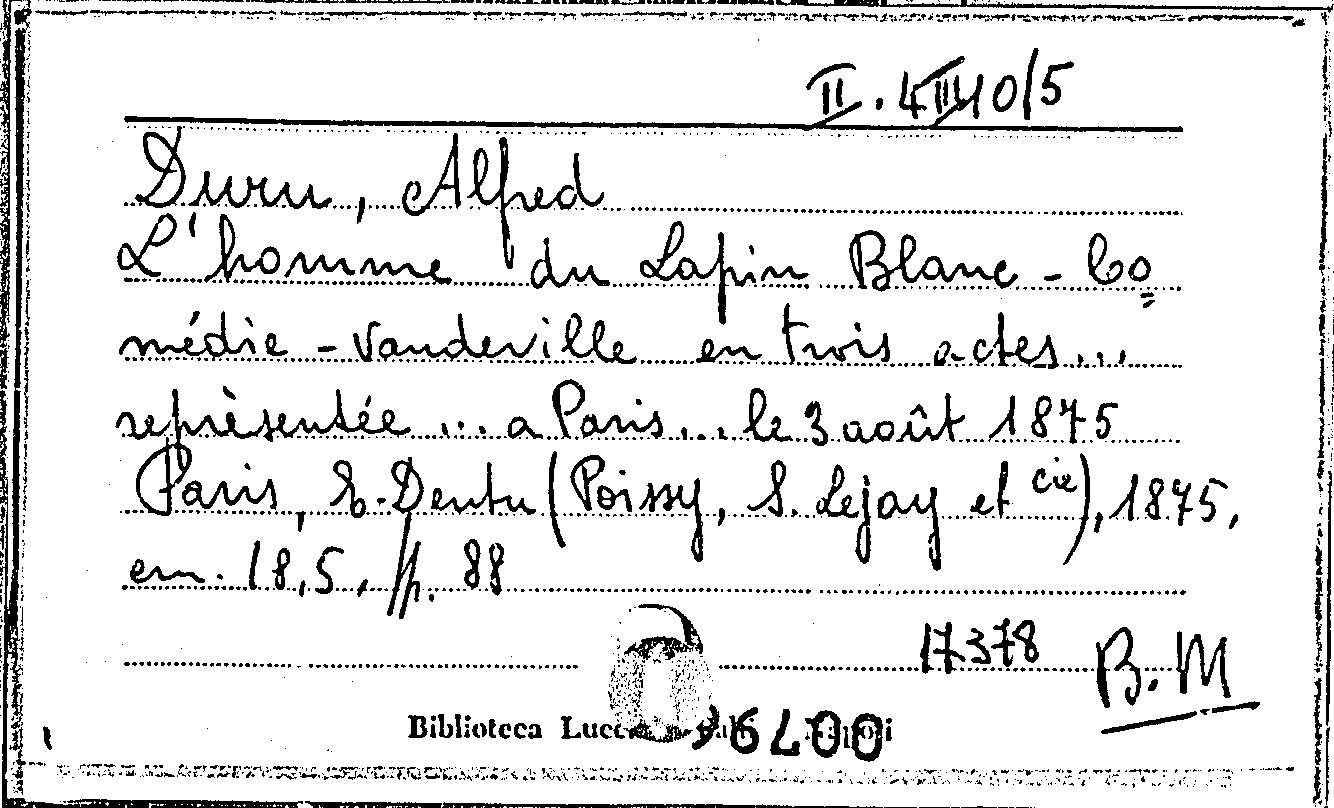 II. 4 III 10/5
Duru, Alfred
L'homme du Lapin Blanc - Co=
médie - vaudeville en trois actes...
représentée ... a Paris... le 3 août 1875
Paris, E. Dentu (Poissy, S. Lejay et Cie), 1875,
cm. 18,5, pp. 88
17378 B. M
Biblioteca